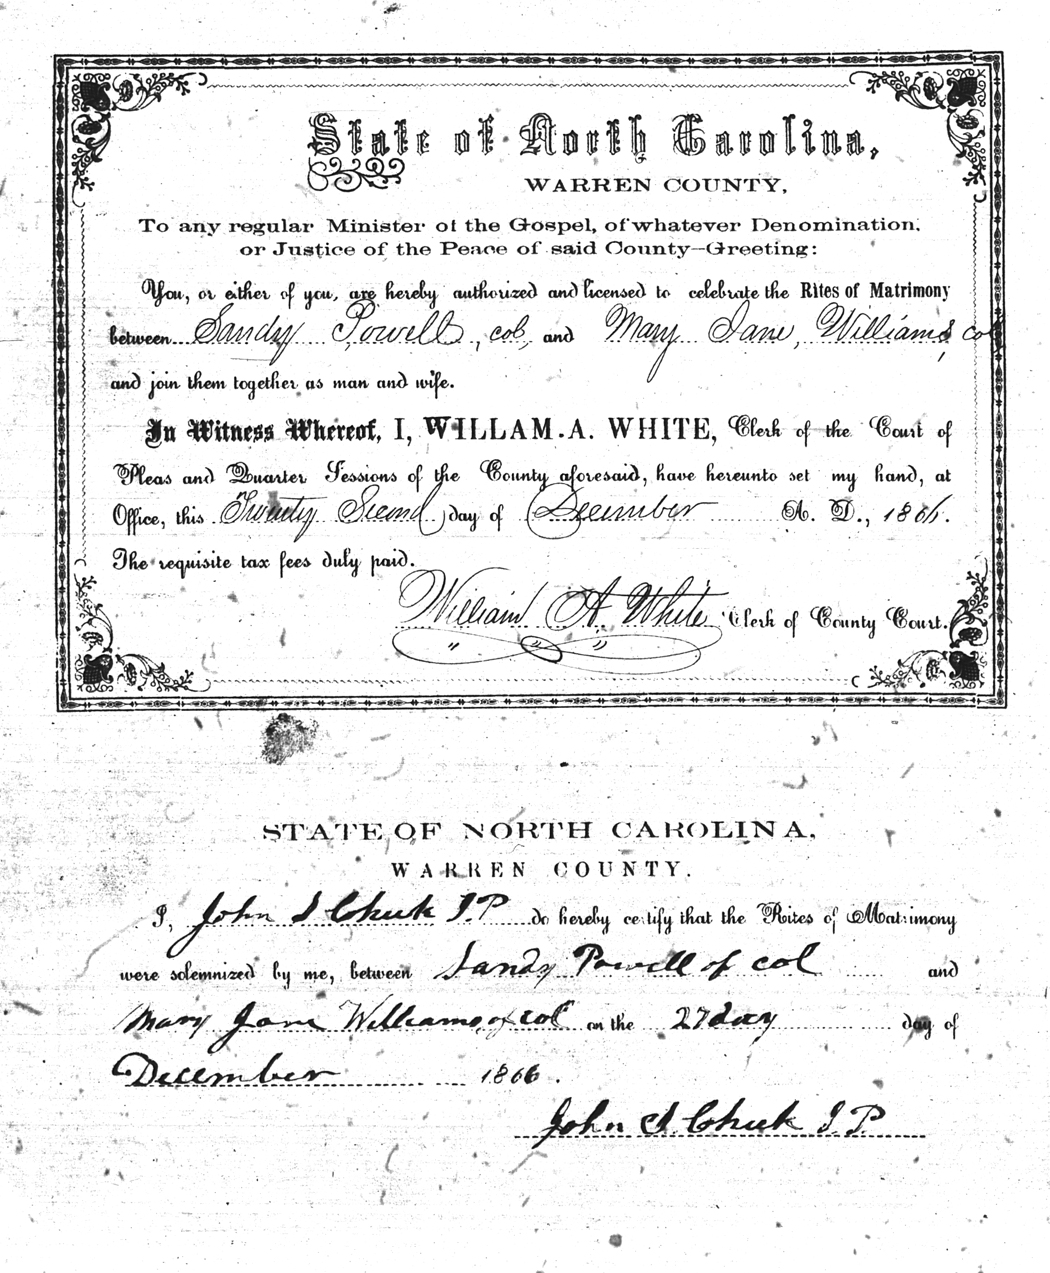 State of North Carolina,
WARREN COUNTY,
To any regular Minister of the Gospel, of whatever Denomination,
or Justice of the Peace of said County—Greeting:
You, or either of you, are hereby authorized and licensed to celebrate the Rites of Matrimony
between Sandy Powell, col, and Mary Jane, Williams, col
and join them together as man and wife.
In Witness Whereof, I, WILLAM. A. WHITE, Clerk of the Court of
Pleas and Quarter Sessions of the County aforesaid, have hereunto set my hand, at
Office, this Twenty Second day of December A. D., 1866.
The requisite tax fees duly paid.
William A. White Clerk of County Court.
STATE OF NORTH CAROLINA,
WARREN COUNTY.
I, John J.P. do hereby certify that the Rites of Matrimony
were solemnized by me, between Sandy Powell of col and
Mary Jane Williams, of col on the 27 day day of
December 1866.
John J.P.